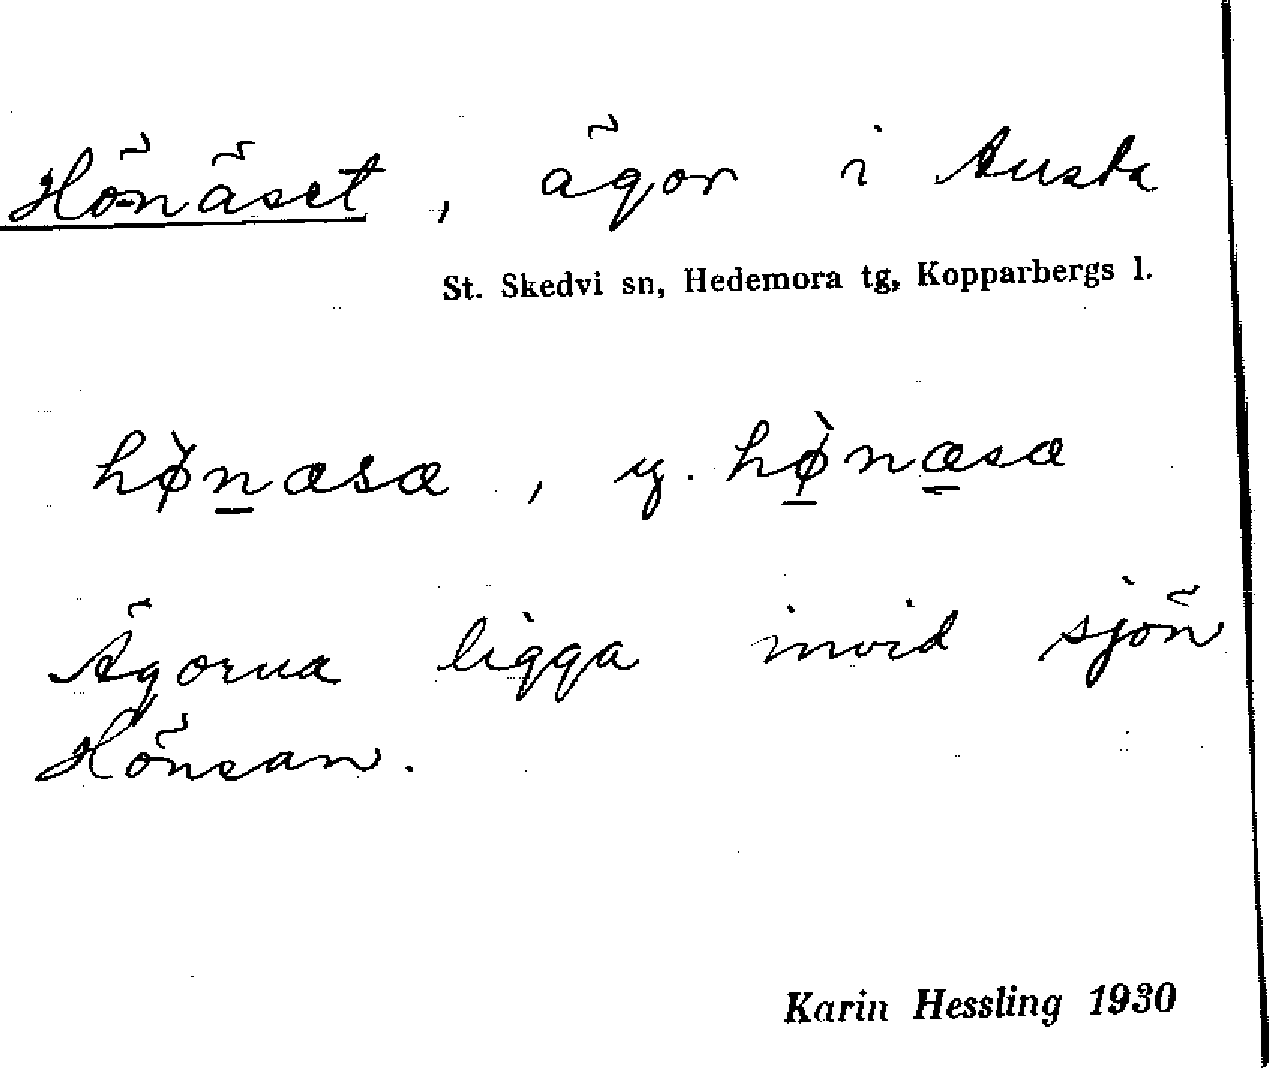 Hönäset, ägor i Austa
St. Skedvi sn, Hedemora tg, Kopparbergs l.
hø̀næsæ, y. hø̀næsæ
Ägorna ligga invid sjön
Hönsan.
Karin Hessling 1930